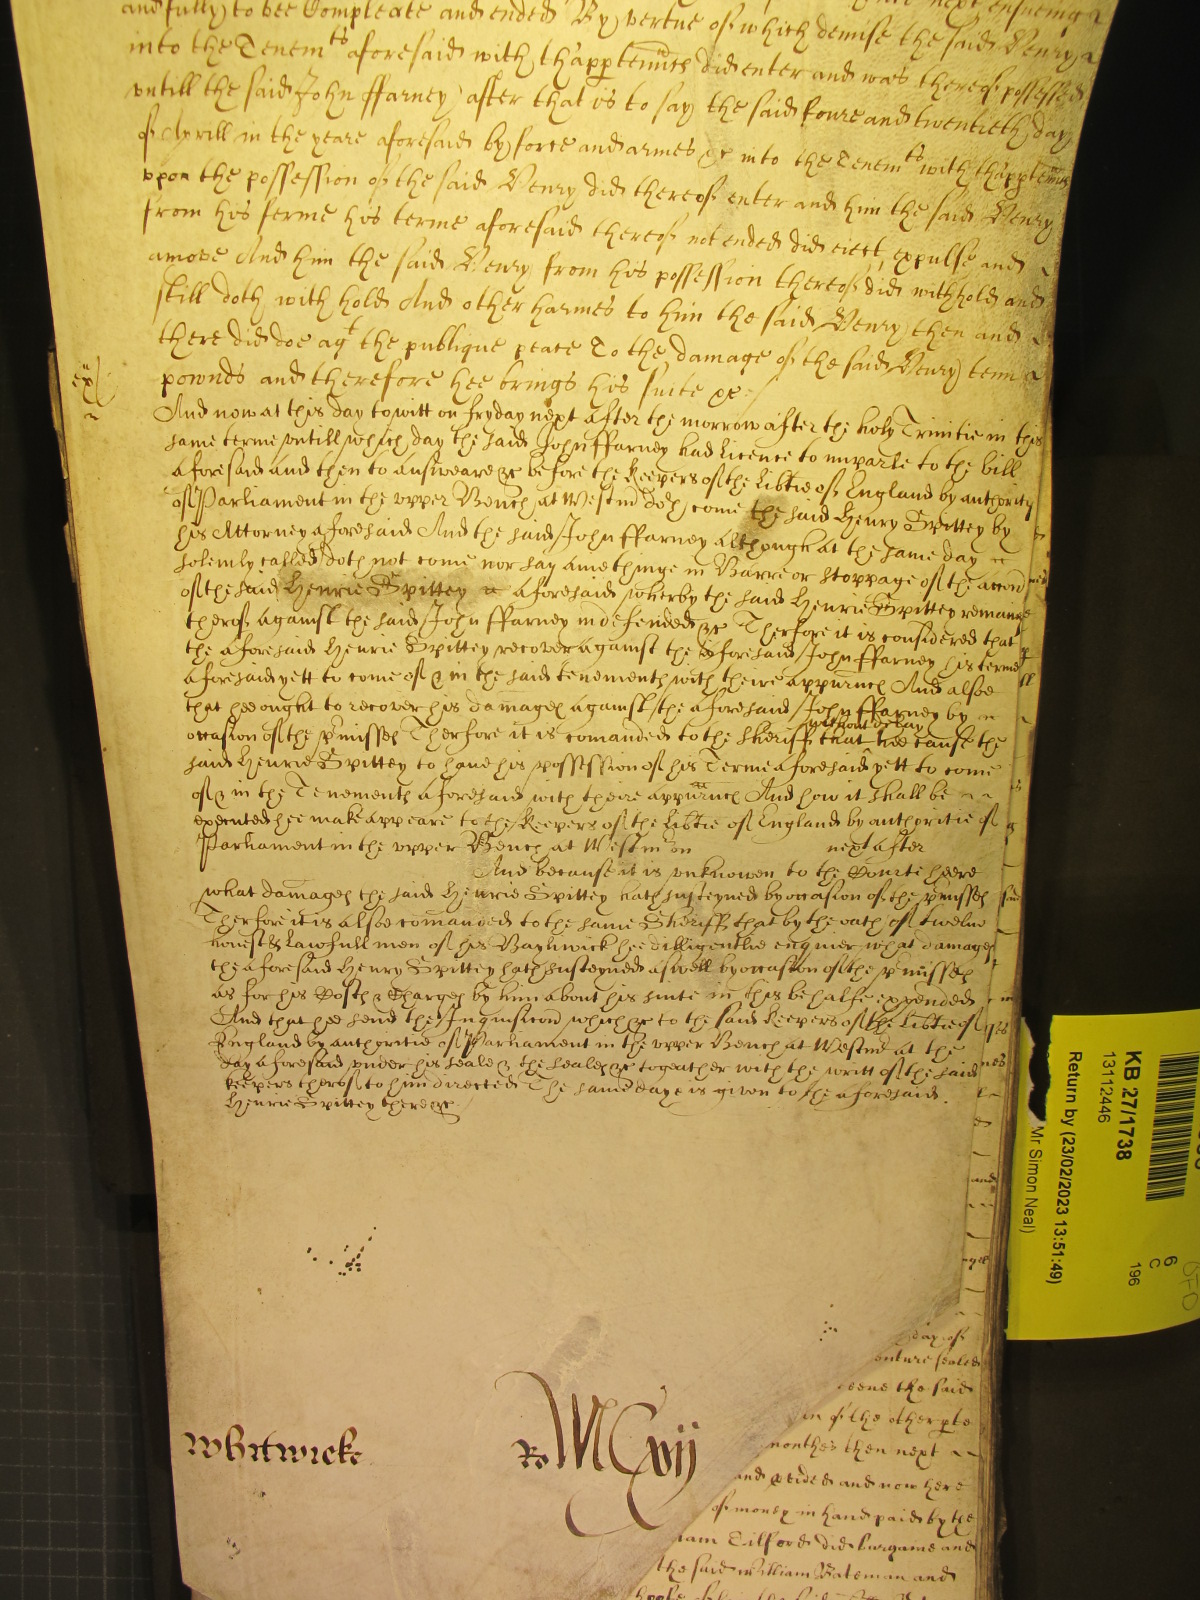 and fully to bee Compleate and ended By vertue of which demise the said Henry
into the Tenemts aforesaid with thapptenncs did enter and was thereof possessed
untill the said John ffarney after that is to say the said foure and twentieth day
of Aprill in the yeare aforesaid by force and armes &c into the Tenemts with thapptennces
upon the possession of the said Henry did thereof enter and him the said Henry
from his ferme his terme aforesaid thereof not ended did eiect expulse and
amove And him the said Henry from his possession thereof did withhold and
still doth with hold And other harmes to him the said Henry then and
there did doe agt the publique peace To the damage of the said Henry tenn
pownds and therefore hee brings his suite &c
And now at this day to witt on fryday next after the morrow after the holy Trinitie in this
same terme untill which day the said John ffarney had Licence to imparle to the bill
aforesaid and then to answeare &c before the Keepers of the Libtie of England by authority
of Parliament in the upper Bench at Westm doth come the said Henry Spittey by
his Attorney aforesaid And the said John ffarney although at the same day
solemly called doth not come nor say anie thinge in Barre or stoppage of the accon
of the said Henrie Spittey aforesaid wherby the said Henrie Spittey remanes
therof against the said John ffarney indefended &c Therfore it is considered that
the aforesaid Henrie Spittey recover against the aforesaid John ffarney his terme
aforesaid yett to come of & in the said tenements with theire appurnces And alsoe
that hee ought to recover his damages against the aforesaid John ffarney by
without delay
occasion of the pmisses Therfore it is comanded to the Sheriff that hee cause the
said Henrie Spittey to have his possession of his Terme aforesaid yett to come
of & in the Tenements aforesaid with theire appurnces And how it shall be
executed hee make appeare to the Keepers of the Libtie of England by authoritie of
Parliament in the upper Bench at Westm on next after
And because it is unknowen to the Courte heere
what damages the said Henrie Spittey hath susteyned by occasion of the pmisses
Therfore it is alsoe comanded to the same Sheriff that by the oath of twelve
honest & Lawfull men of his Baylywick hee dilligentlie enquier what damages
the aforesaid Henry Spittey hath susteyned aswell by occasion of the pmisses
as for his Costs & Charges by him about his suite in this behalfe expended
And that hee send the Inquisicon which &c to the said Keepers of the Libtie of
England by authoritie of Parliament in the upper Bench at Westm at the
day aforesaid under his seale & the seales &c togeather with the writt of the said
Keepers therof to him directed The same daye is given to the aforesaid
Henrie Spittey there &c
Whitwicke
Ro MCxvij
day of
enture sealed
the said
in of the other pte
monthes then next
and now here
of money in hand paid by the
Tilford did bargaine and
the said William Bateman and
KB 27/1738
13112446
Return by (23/02/2023 13:51:49)
Mr Simon Neal)
6
C
196